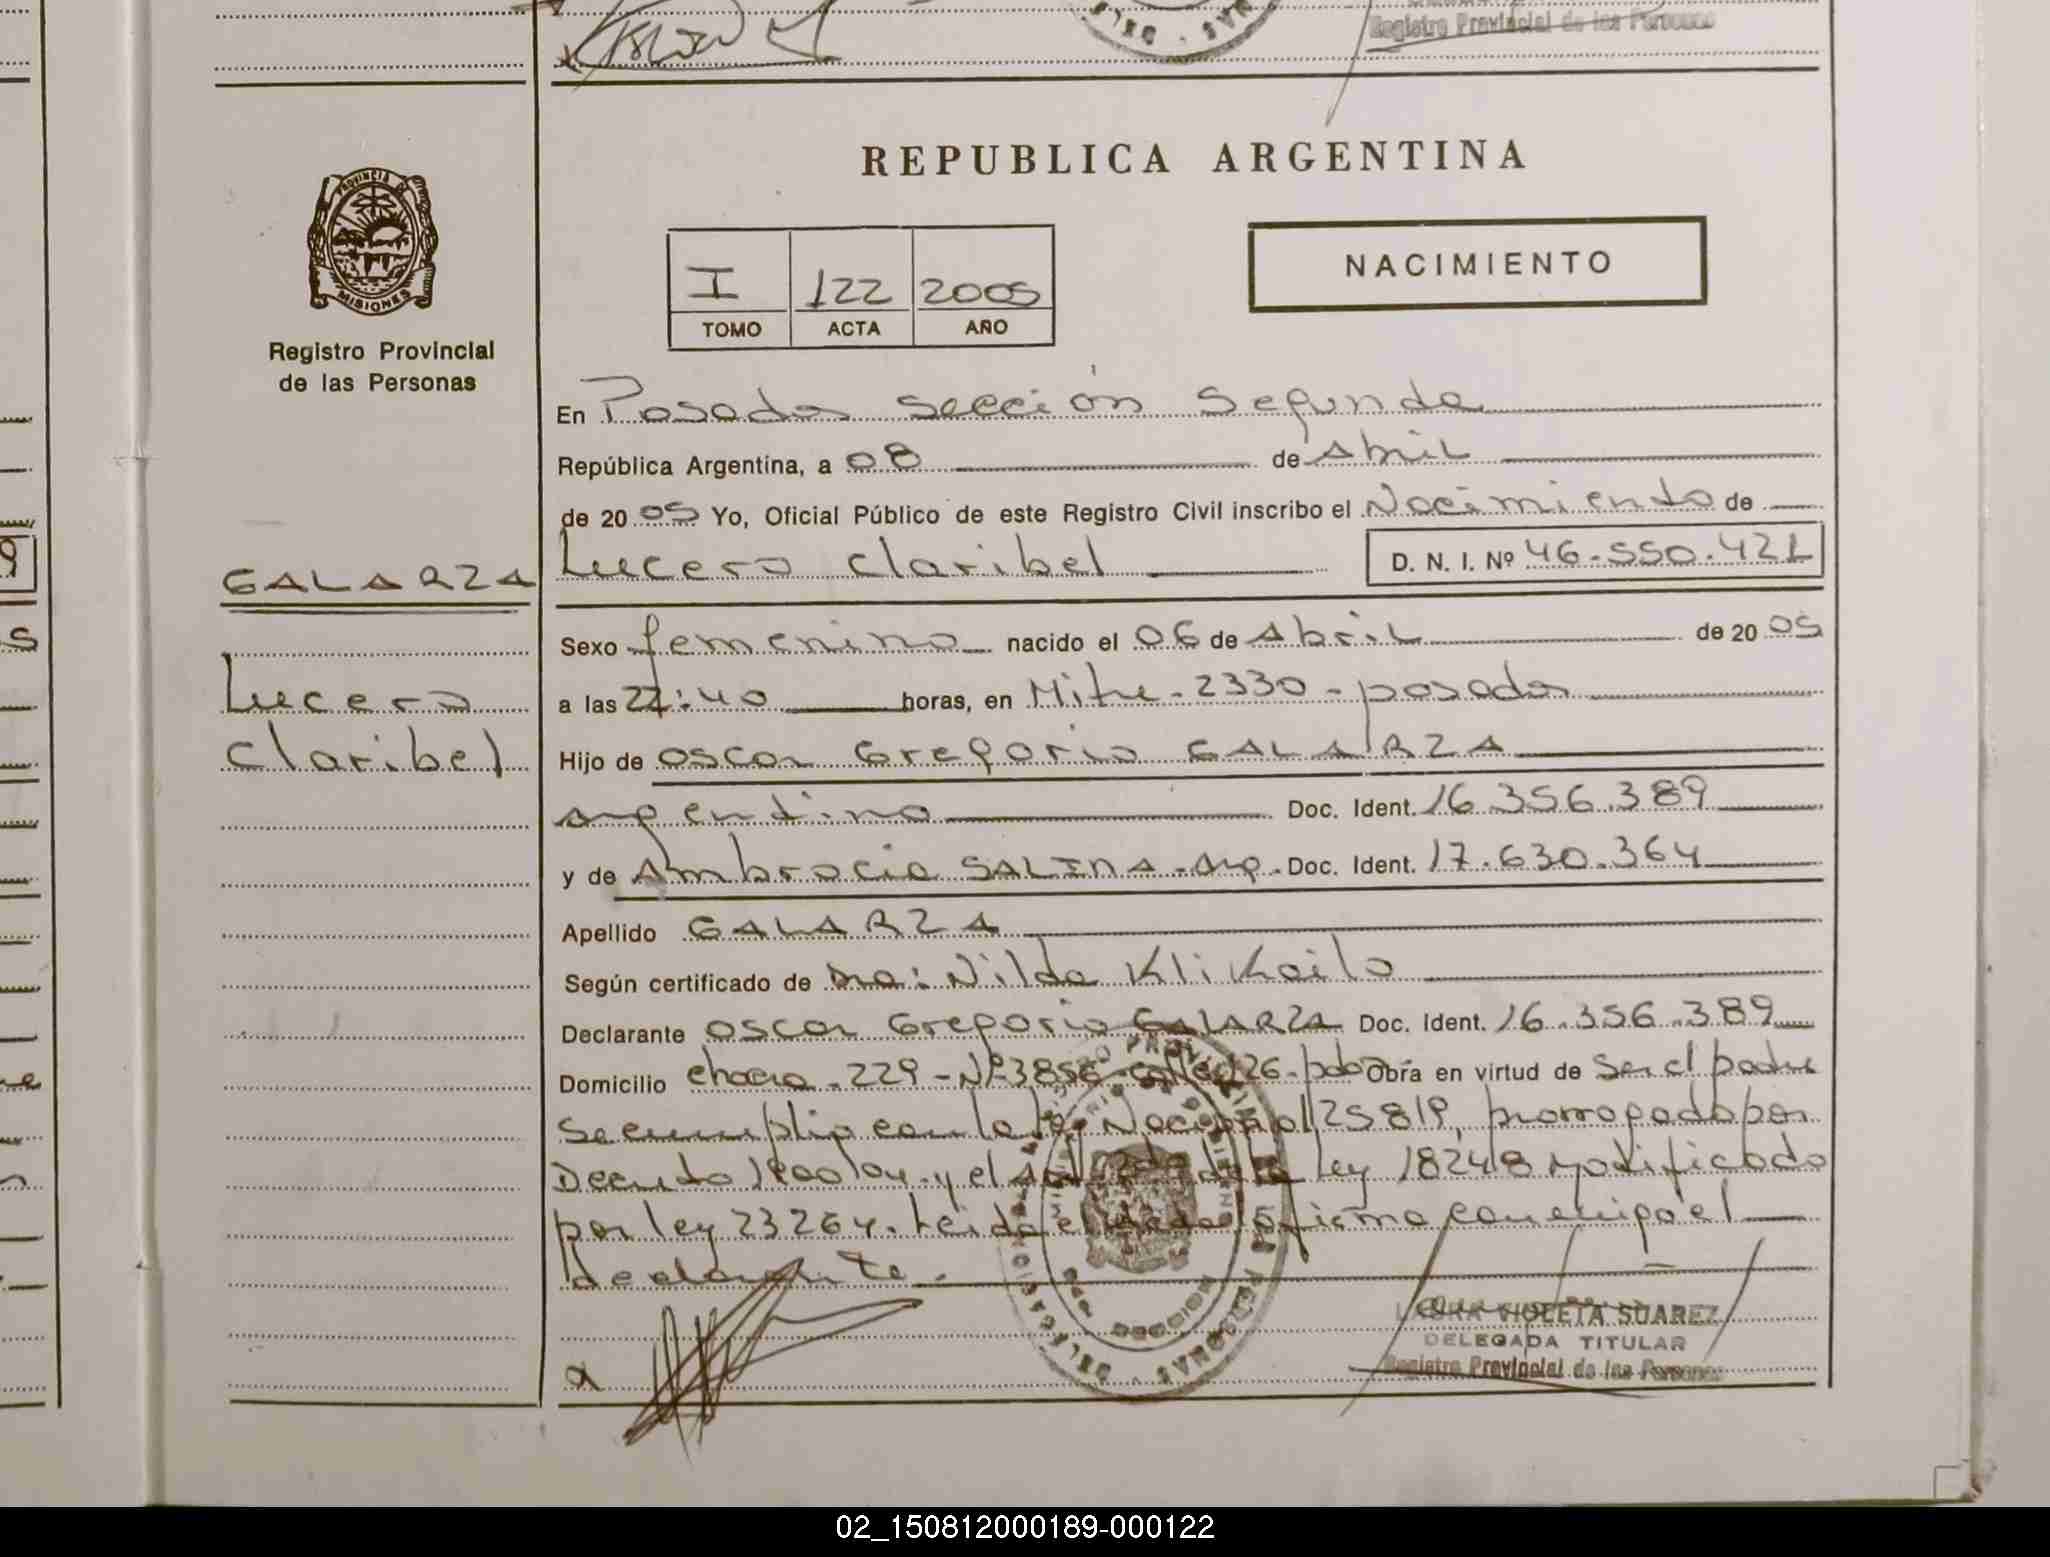 Registro Provincial de las Personas
REPUBLICA ARGENTINA
PROVINCIA DE
MISIONES
Registro Provincial
de las Personas
I 122 2005
TOMO ACTA AÑO
NACIMIENTO
En Posadas sección Segunda
República Argentina, a 08 de Abril
de 2005 Yo, Oficial Público de este Registro Civil inscribo el Nacimiento de
GALARZA
Lucero Claribel D. N. I. Nº 46.550.421
Lucero
Claribel
Sexo femenino nacido el 06 de Abril de 2005
a las 22:40 horas, en Mitre - 2330 - posadas
Hijo de Oscar Gregorio GALARZA
argentino Doc. Ident. 16.356.389
y de Ambrocia SALINA - Arg. Doc. Ident. 17.630.364
Apellido GALARZA
Según certificado de Dra: Nilda Klikailo
Declarante Oscar Gregorio GALARZA Doc. Ident. 16.356.389
Domicilio chacra - 229 - Nº 3856 - calle 126 - pdas Obra en virtud de Ser el padre
Se cumplio con la ley Nacional 25819, prorrogada por
Decreto 1800/04 y el de la ley 18248 modificado
por ley 23264. Leida el Acta la firma conmigo el
declarante.
LAURA VIOLETA SUAREZ
DELEGADA TITULAR
Registro Provincial de las Personas
02_150812000189-000122